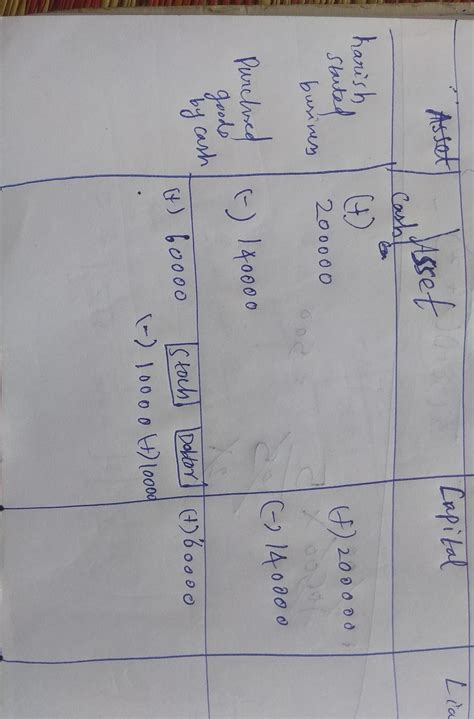 Asset Asset Capital Lia
Cash
harish (+) (+) 200000
started 200000
business
Purchased (-) 140000 (-) 140000
goods
by cash
Stock Debtor
(+) 60000 (-) 10000 (+) 10000 (+) 60000